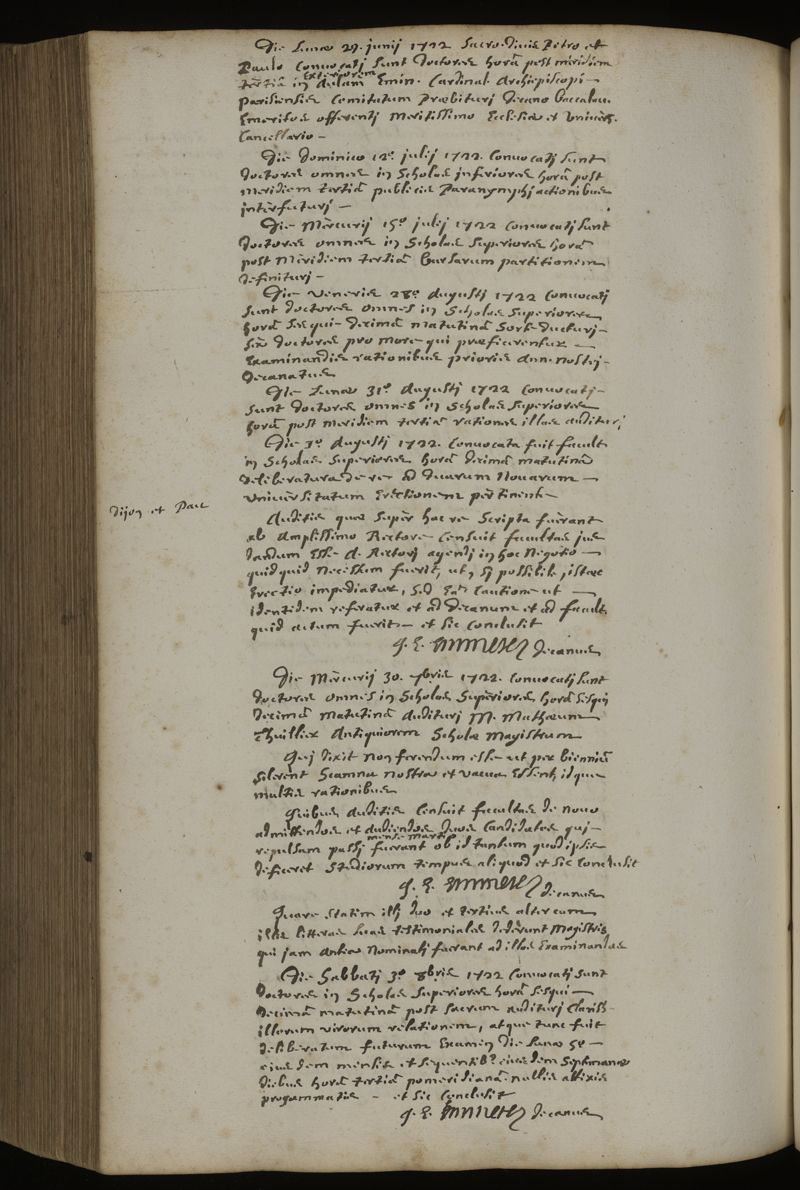 Die Lunæ 29. junij 1722 Sacro Divis Petro et
Paulo Convocatj sunt doctores horâ post meridiem
tertiâ in exteriorem Aulam Emin. Cardinal. Archiepiscopi
parisiensis Comitatum præbiturj decano baccalau.
Emeritos offerentj meritissimo Ecclesiæ et Univers.
Cancellario –
Die dominico 12º julij 1722. Convocatj sunt
doctores omnes in Scholas inferiores horâ post
meridiem tertiâ publicis Paranymphj actionibus
interfuturj –
Die Mercurij 15º julij 1722 Convocatj sunt
doctores omnes in Scholas superiores horâ
post meridiem tertiâ bursarum partitionem
definiturj –
Die Veneris 28º Augustj 1722 Convocatj
sunt doctores omnes in Scholas superiores
horâ sesqui-decimâ matutinâ sorte ducturj
doctores pro more qui præficerentur
Examinandis rationibus prioris ann. nostrj
decanatus
Die Lunæ 31º Augustj 1722 Convocatj
sunt doctores omnes in Scholas superiores
horâ post meridiem tertiâ rationes illas audituri
Die Augustj 1722. Convocata fuit facult.
in Scholas superiores horâ decimâ matutinâ
deliberatura de re ad duarum novarum
universitatum Erectionem pertinente
Dijon et Pau
Auditis quæ super hac re scripta fuerant
ab Amplissimo Rectore Censuit facultas jus
dandum esse d. Rectorj agendj in hoc negotio
quidquid necessum fuerit, ut, sj possibile, istæc
Erectio impediatur, sed eâ Cautione ut
identidem referatur et ad decanum et ad facult.
quid actum fuerit – et sic Conclusit
decanus
Die Mercurij 30. 7bris 1722. Convocatj sunt
doctores omnes in Scholas Superiores horâ sesqui
decimâ matutinâ Auditurj M. Mathæum
Thuillier Antiquiorem Scholæ Magistrum
Qui dixit non ferendum esse ut per biennium
silerent Scamna nostra et vacua Essent, idque
multis rationibus
Quibus auditis Censuit facultas de novo
admittendos et audiendos duos Candidatos qui
repulsam passj fuerant mense martio ob id tantum quod ipsis
deficeret Studiorum tempus aliquod et sic Conclusit
decanus
Quare statim illj duo et tertius alter cum
illis litteras suas testimoniales dederunt Magistris
qui jam antea nominatj fuerant ad illas Examinandas
Die Sabbatj 3º 8bris 1722 Convocatj sunt
doctores in Scholas superiores horâ sesqui
decimâ matutinâ post sacrum auditurj Clariss.
illorum virorum relationem, atque tunc fuit
deliberatum futurum Examen die Lunæ 5º
eiusdem mensis et sequentibs eiusdem Septimanæ
diebus horâ tertiâ pomeridianâ nullis affixis
programmatis – et sic Conclusit
decanus